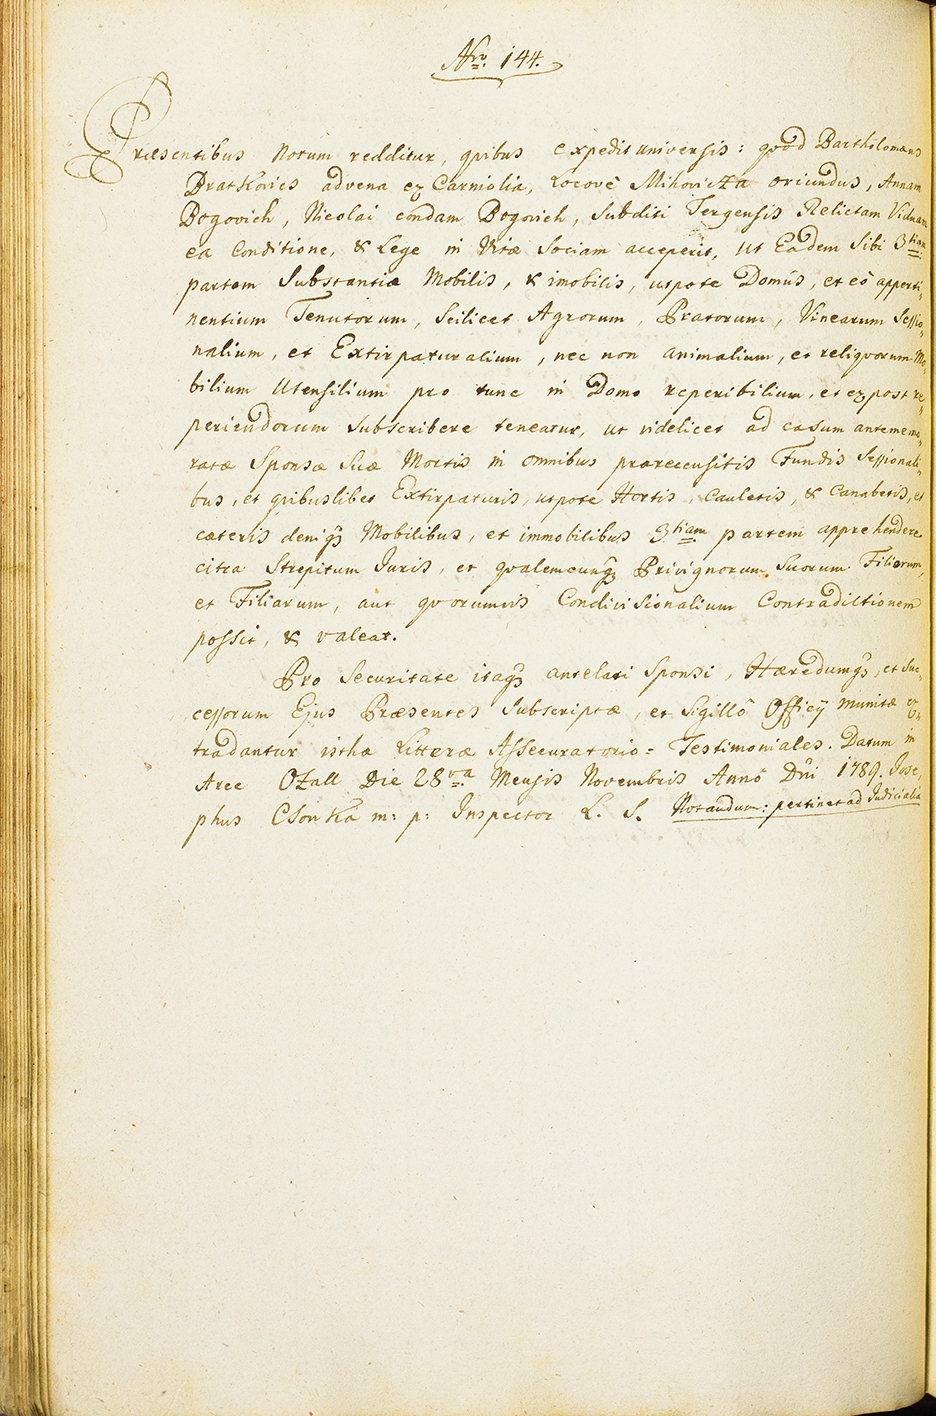 Nro. 144.
Præsentibus Notum redditur, quibus expedit universis: quod Bartholomæus
Dratkovics advena ex Carniolia, Locove Mihovicza oriundus, Annam
Bogovich, Nicolai condam Bogovich, Subditi Tergensis Relictam Viduam
ea Conditione, & Lege in Vitæ Sociam acceperit, ut Eadem Sibi 3tiam
partem Substantiæ Mobilis, & imobilis, utpote Domûs, et eô apperti-
nentium Tenutorum, Scilicet Agrorum, Pratorum, Vinearum Sessio-
nalium, et Extirpaturalium, nec non animalium, et reliquorum Mo-
bilium Utensilium pro tunc in Domo reperibilium, et ex post re-
periendorum Subscribere teneatur, ut videlicet ad casum antememo-
ratæ Sponsæ Suæ Mortis in omnibus præreccensitis Fundis Sessionali-
bus, et quibuslibet Extirpaturis, utpote Hortis, Cauletis, & Canabetis, et
cæteris deniqȝ Mobilibus, et immobilibus 3tiam partem apprehendere
citra Strepitum Juris, et qvalemcunqȝ Privignorum Suorum Filiorum,
et Filiarum, aut qvorumvis Condivisionalium Contradictionem
possit, & valeat.
Pro Securitate itaqȝ antelati Sponsi, Hæredumqȝ, et Suc-
cessorum Ejus Præsentes Subscriptæ, et Sigillô Officÿ munitæ ex-
tradantur isthæ Litteræ Assecuratorio = Testimoniales. Datum in
Arce Ozall Die 28va Mensis Novembris Annô Dni 1789. Jose-
phus Csonka m: p: Inspector L. S. Notandum: pertinet ad Judicialia